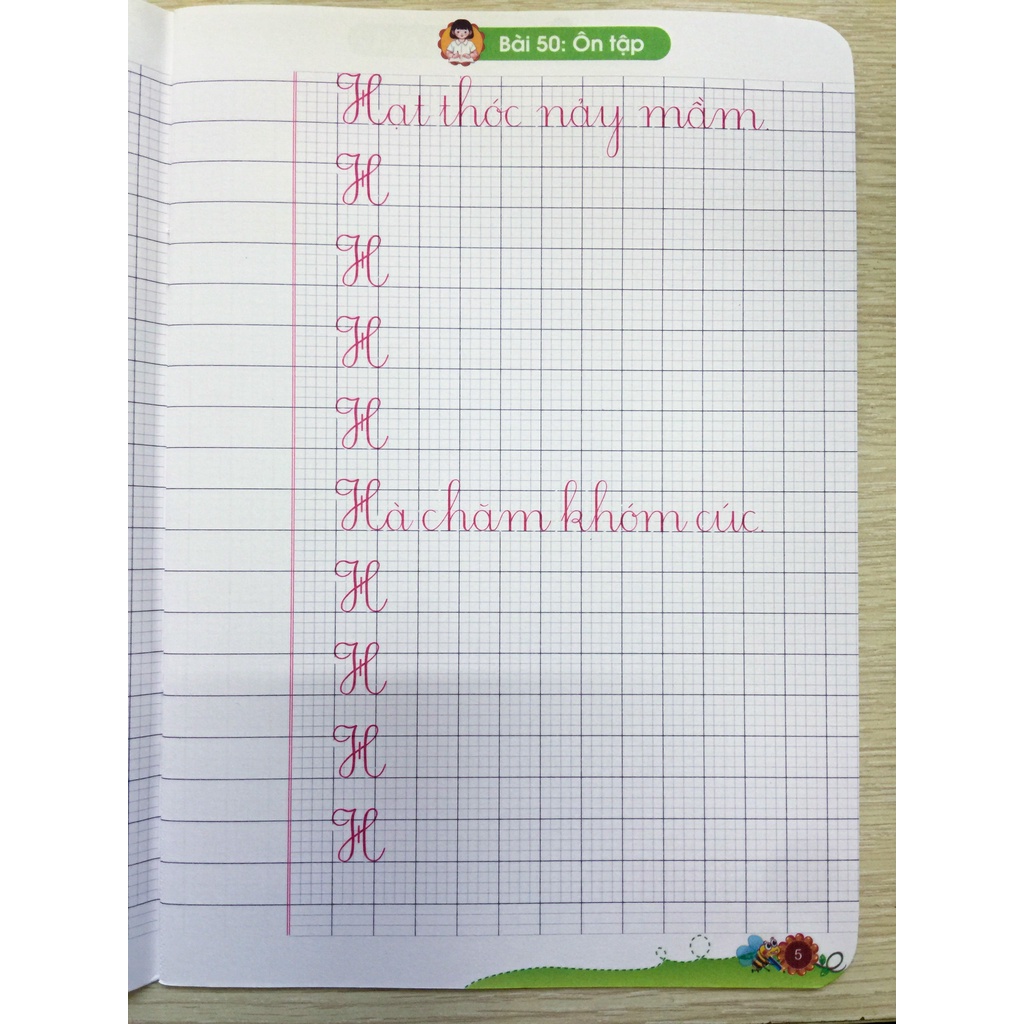 Bài 50: Ôn tập
Hạt thóc nảy mầm.
H
H
H
H
Hà chăm khóm cúc.
H
H
H
H
5